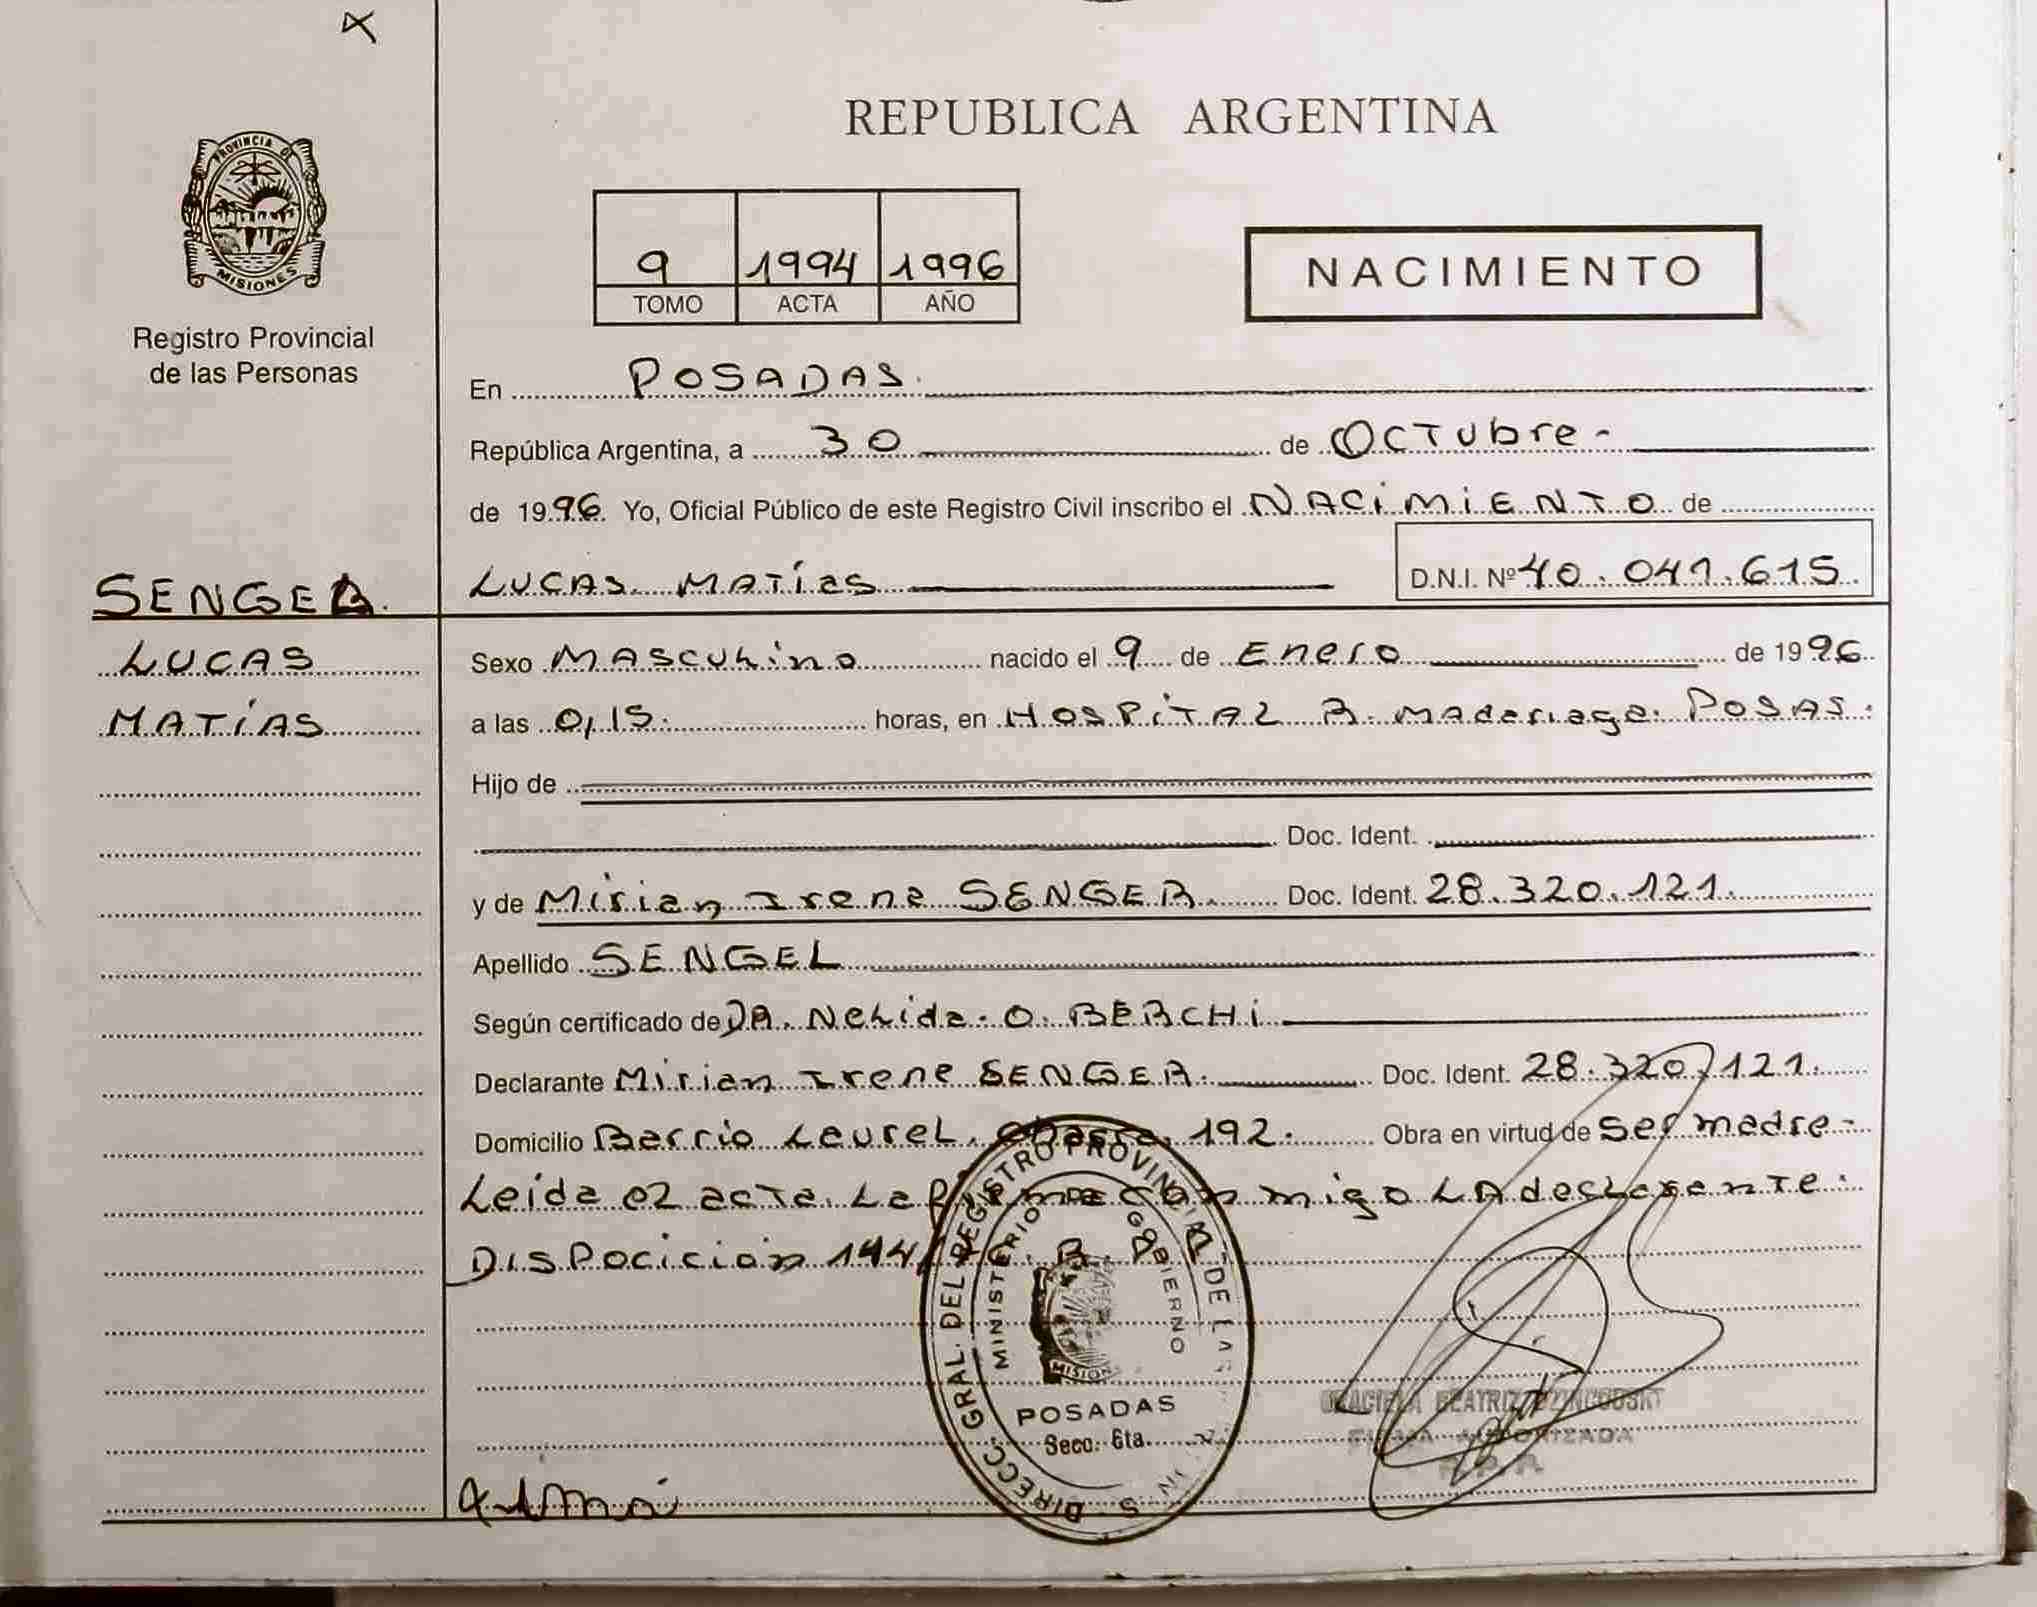 REPUBLICA ARGENTINA
PROVINCIA DE
MISIONES
Registro Provincial
de las Personas
9 1994 1996
TOMO ACTA AÑO
NACIMIENTO
En POSADAS.
República Argentina, a 30 de OCTubre -
de 1996. Yo, Oficial Público de este Registro Civil inscribo el NACiMiENTO de
LUCAS MATías D.N.I. Nº 40.041.615.
SENGER.
LUCAS
MATÍAS
Sexo MASCULino nacido el 9 de Enero de 1996
a las 0,15. horas, en HOSPiTAL R. Madariaga. POSAS.
Hijo de
Doc. Ident.
y de Mirian Irene SENGER. Doc. Ident. 28.320.121.
Apellido SENGEL
Según certificado de DR. NeLida. O. BERCHi
Declarante Mirian Irene SENGER. Doc. Ident. 28.320.121.
Domicilio Barrio LaureL, 192. Obra en virtud de ser madre-
Leida eL acta. La Firma conmigo LA decLarante.
DISPOCICIÓN 144/
DIRECC. GRAL. DEL REGISTRO PROVINCIAL DE LAS
MINISTERIO GOBIERNO
MISIONES
POSADAS
Secc. 6ta.
GRACIELA BEATRIZ
FIRMA AUTORIZADA
R.P.P.